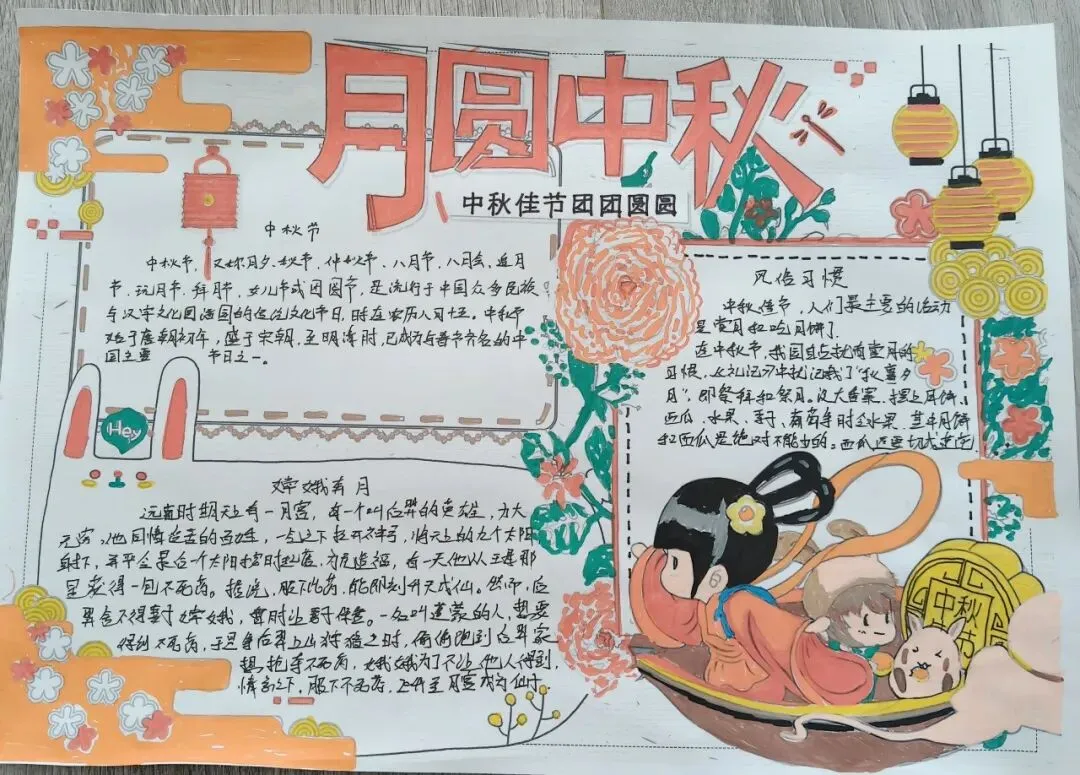 月圆中秋
中秋佳节团团圆圆
中秋节
中秋节，又称月夕、秋节、仲秋节、八月节、八月会、追月
节、玩月节、拜月节、女儿节或团圆节，是流行于中国众多民族
与汉字文化圈诸国的传统文化节日，时在农历八月十五。中秋节
始于唐朝初年，盛于宋朝，至明清时，已成为与春节齐名的中
国主要 节日之一。
Hey
风俗习惯
中秋佳节，人们最主要的活动
是赏月和吃月饼了。
在中秋节，我国自古就有赏月的
习惯，《礼记》中就记载了“秋暮夕
月”，即祭拜和祭月。设大香案，摆上月饼、
西瓜、水果、李子、葡萄等时令水果，其中月饼
和西瓜是绝对不能少的。西瓜还要切成
嫦娥奔月
远古时期天上有一月宫，有一个叫后羿的英雄，力大
无穷，他同情受苦的百姓，一点之下拉开神弓，将天上的九个太阳
射下，并严令最后一个太阳按时起落，为民造福，有一天他从王母那
里求得一包不死药。据说，服下此药，能即刻升天成仙。然而，后
羿舍不得妻子嫦娥，暂时让妻子保管。一名叫逢蒙的人，想要
得到不死药，于是乘后羿上山狩猎之时，偷偷跑到后羿家
想抢夺不死药，嫦娥为了不让他人得到，
情急之下，服下不死药，飞升至月宫成为仙子
中秋